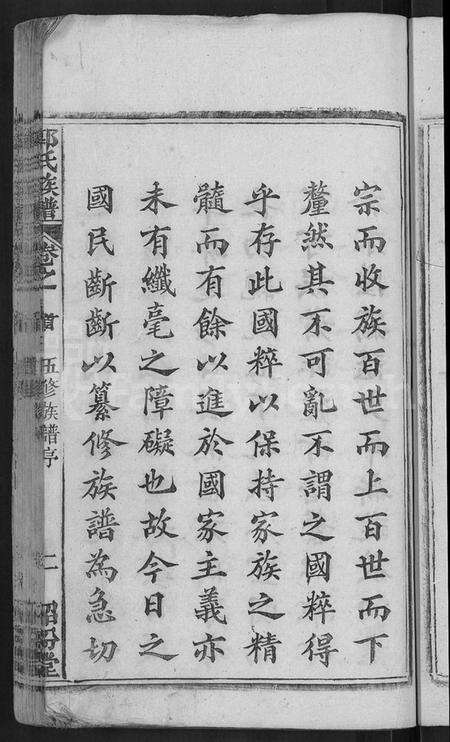 宗而收族百世而上百世而下
釐然其不可亂不謂之國粹得
乎存此國粹以保持家族之精
髓而有餘以進於國家主義亦
未有纖毫之障礙也故今日之
國民斷斷以纂修族譜為急切
邱氏族譜 卷之一 首 五修族譜序 二